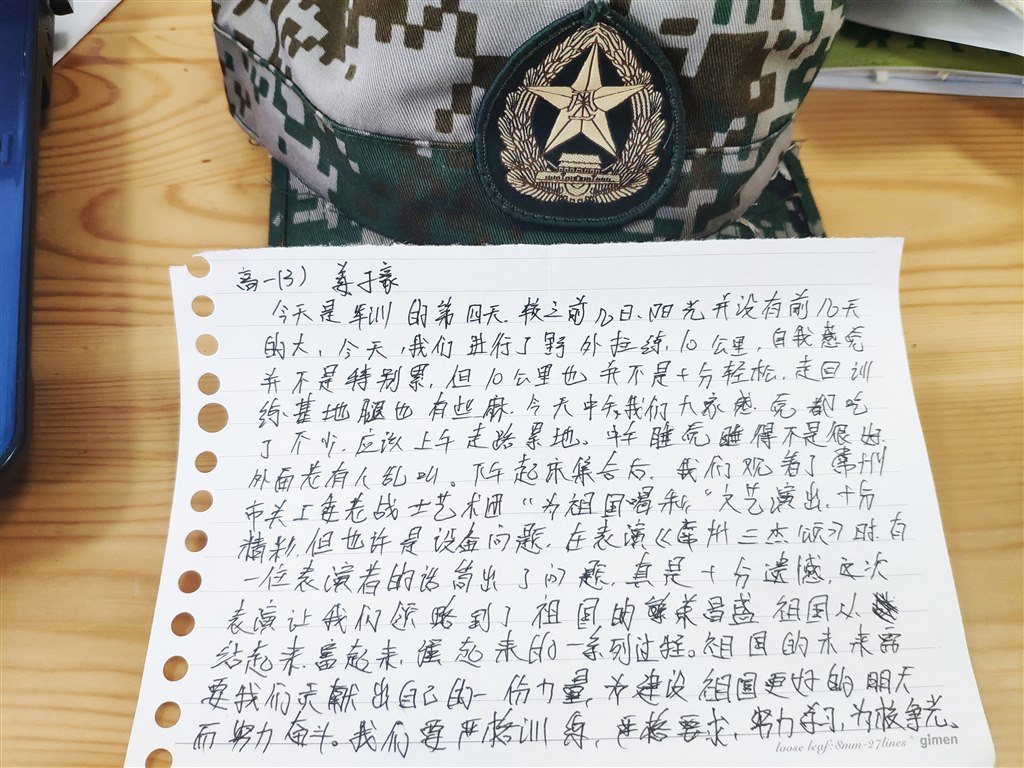 高一(3) 姜子豪
今天是军训的第四天.较之前几日、阳光并没有前几天
的大,今天,我们进行了野外拉练,10公里,自我感觉
并不是特别累,但10公里也并不是十分轻松,走回训
练基地腿也有些麻.今天中午我们大家感觉都吃
了不少.应该上午走路累地。中午睡觉睡得不是很好.
外面老有人乱叫。下午起床集合后,我们观看了常州
市关工委老战士艺术团“为祖国喝彩”文艺演出.十分
精彩,但也许是设备问题,在表演《常州三杰颂》时.有
一位表演者的话筒出了问题,真是十分遗憾,这次
表演让我们领略到了祖国的繁荣昌盛 祖国从
站起来.富起来,强起来的一系列过程。祖国的未来需
要我们贡献出自己的一份力量,为建设祖国更好的明天
而努力奋斗。我们要严格训练,严格要求,努力学习,为校争光、
loose leaf:8mm-27lines gimen